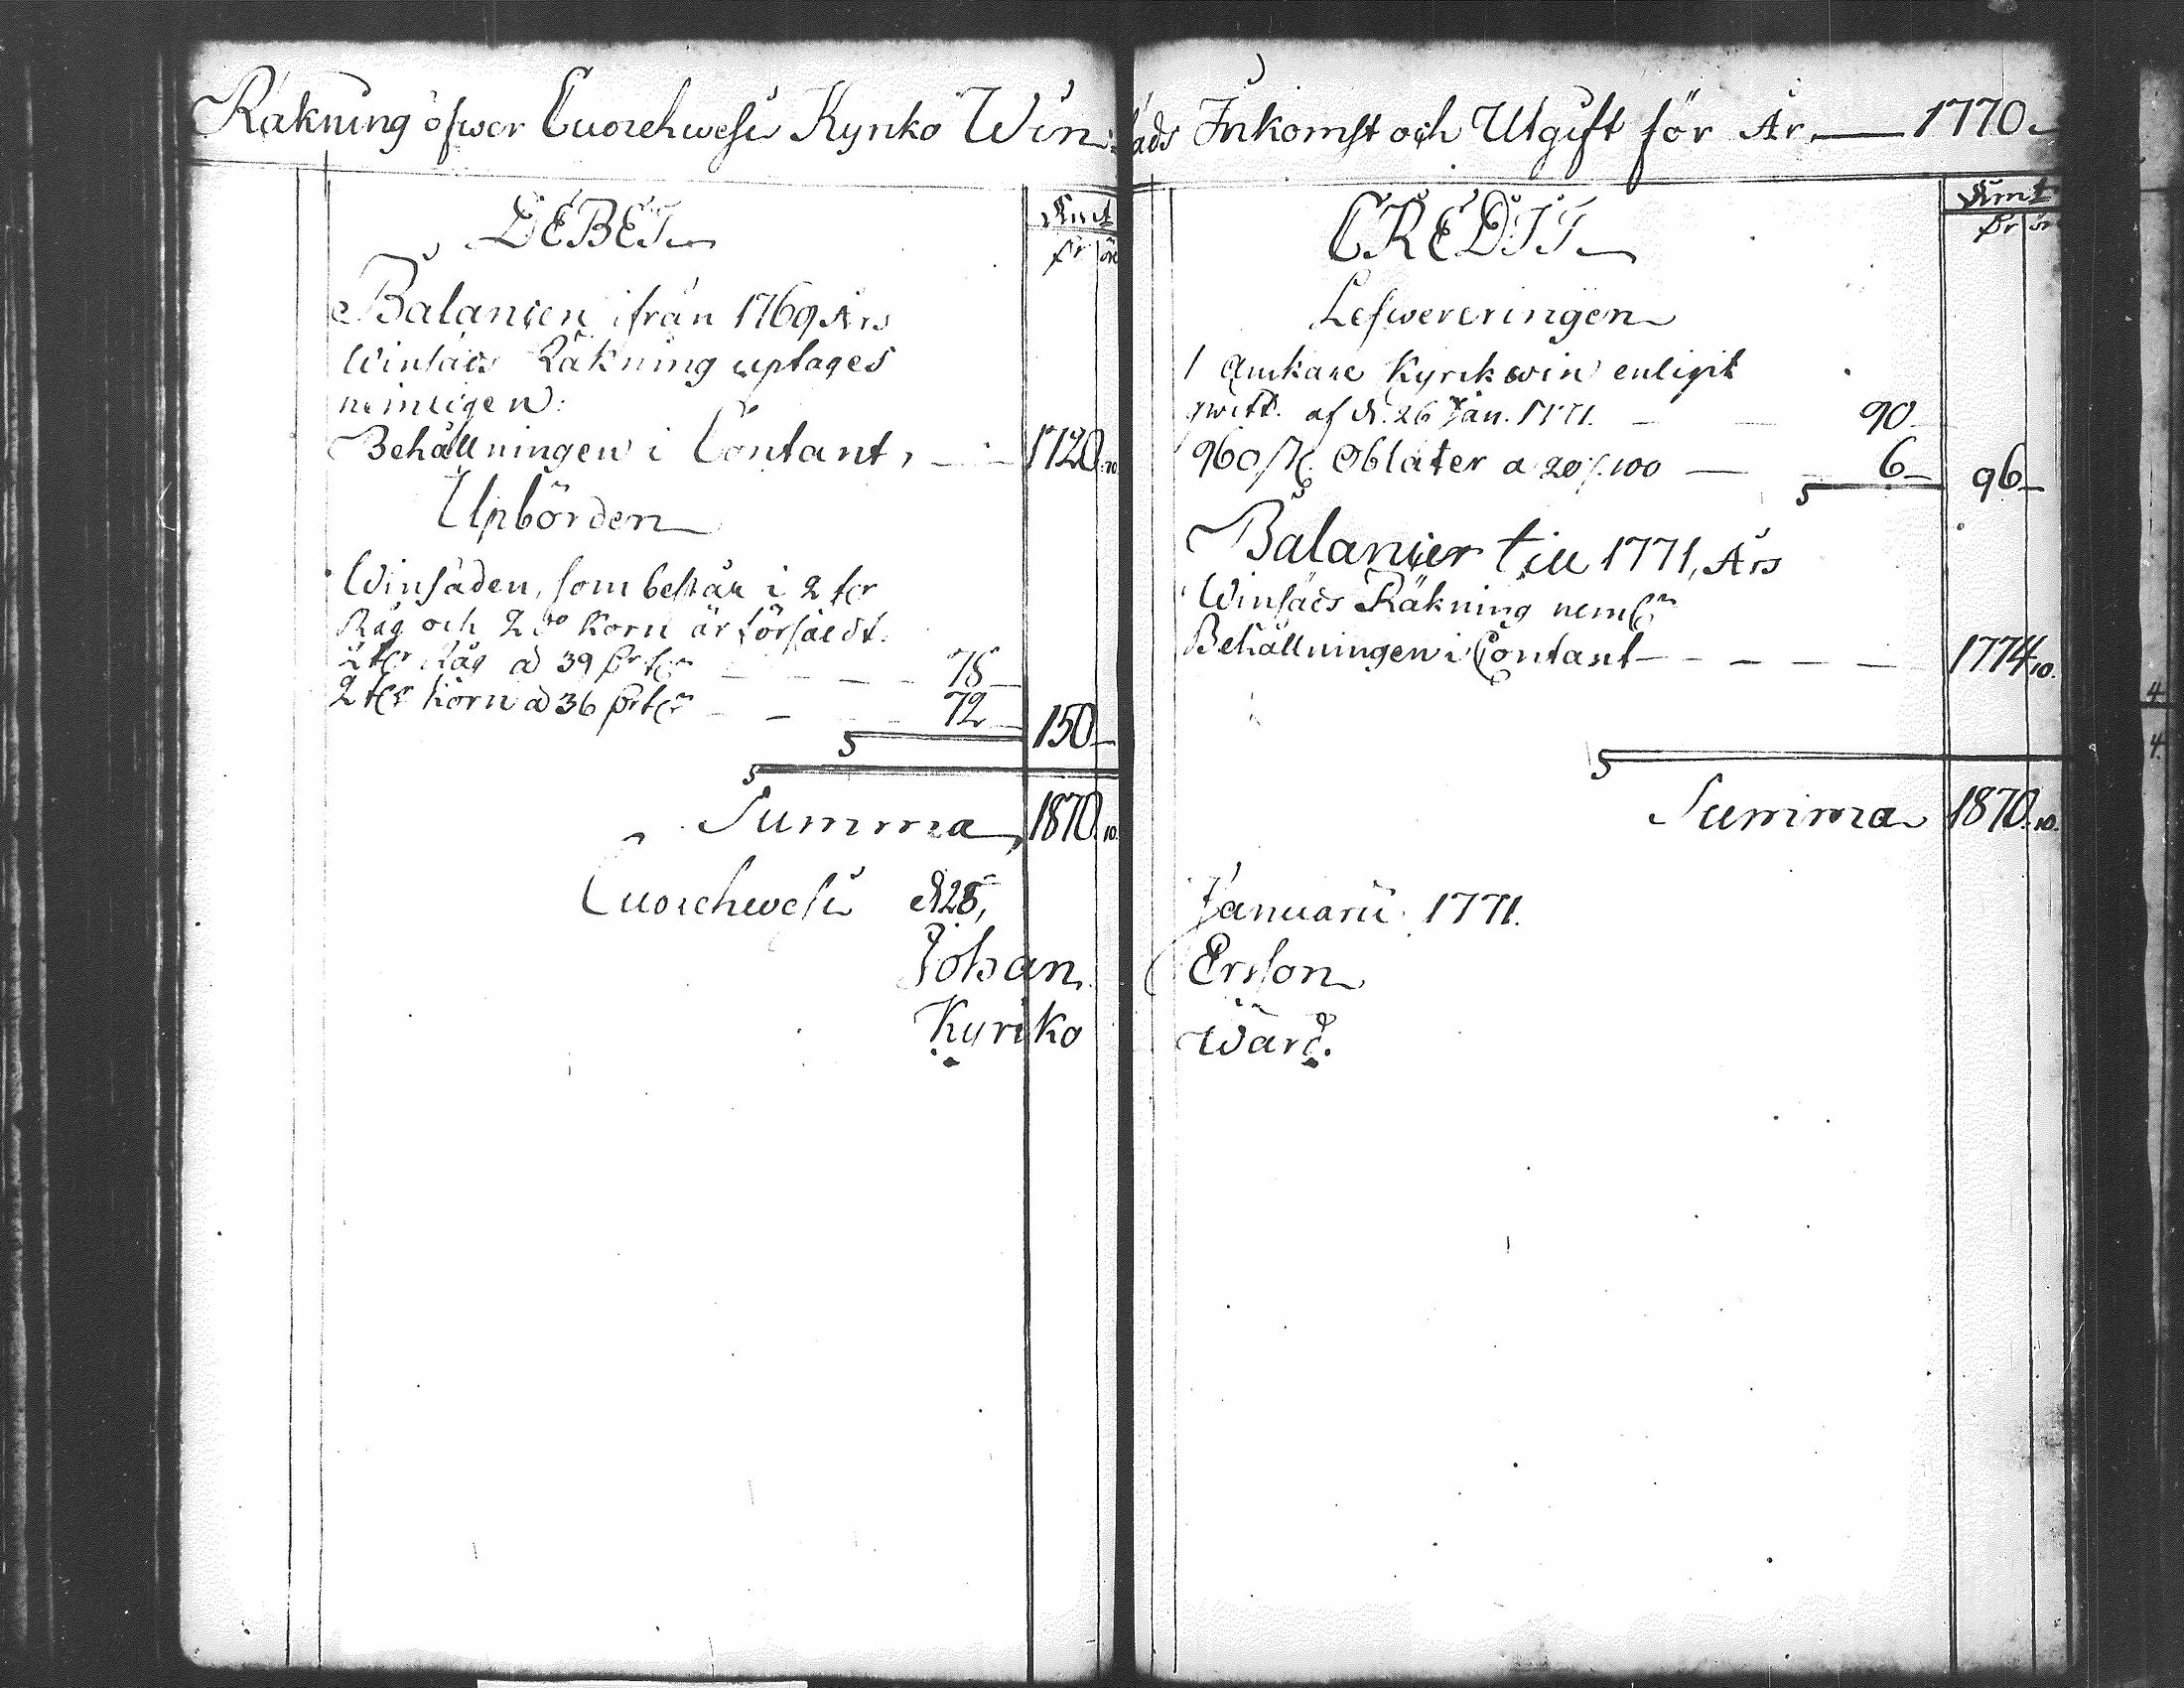 Räkning öfwer Cuorehwesi Kyrko Win:
DEBET
Kmt
Dr öre
Balancen ifrån 1769 Ars
Winsäds Räkning uptages
nemligen:
Behållningen i Contant, 1720. 10
Upbörden
Winsäden, som består i 2 tr
Råg och 2 do Korn är försåldt.
2 tr Råg a 39 Dr tr 78
2 tr Korn a 36 Dr tr 72 150
Summa 1870. 10.
Cuorehwesi d 28,
Johan
Kyrko
säds Inkomst och Utgift för År 1770.
CREDIT
Kmt
Dr ör
Lefwereringen
1 Anckare Kyrckwin enligit
qwitt. af d. 26 Jan. 1771. 90
960 st. Oblater a 20 /. 100 6 96
Balancer till 1771, Års
Winsäds Räkning neml:n
Behållningen i Contant 1774. 10.
Summa 1870. 10.
Januarii 1771.
Ersson
Wärd.
4
4.